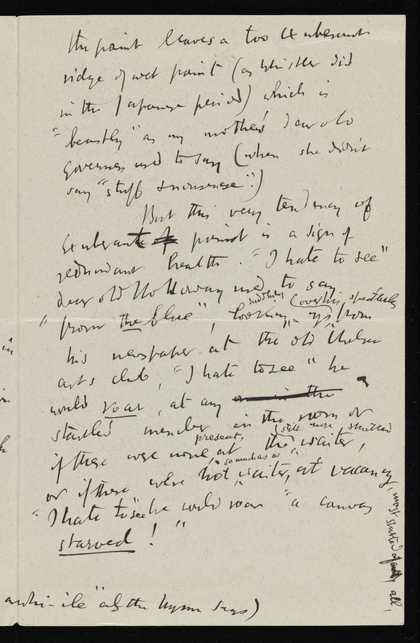 the paint leaves a too exuberant
ridge of wet paint (as Whistler did
in the Japanese period) which is
"beastly" as my mother's dear old
governess used to say (when she didn't
say "stuff & nonsense".)
But this very tendency of
exuberant paint is a sign of
redundant health. "I hate to see"
dear old Holloway used to say
"from the blue", looking suddenly up over his spectacles from
his newspaper at the old Chelsea
arts club, "I hate to see" he
would roar, at any
startled member in the room or
if there were none present, at the still more startled waiter,
or if there were not so much as a waiter, at vacancy, most startled of all,
"I hate to see" he would roar "a canvas
starved!"
in
"as the hymn says)